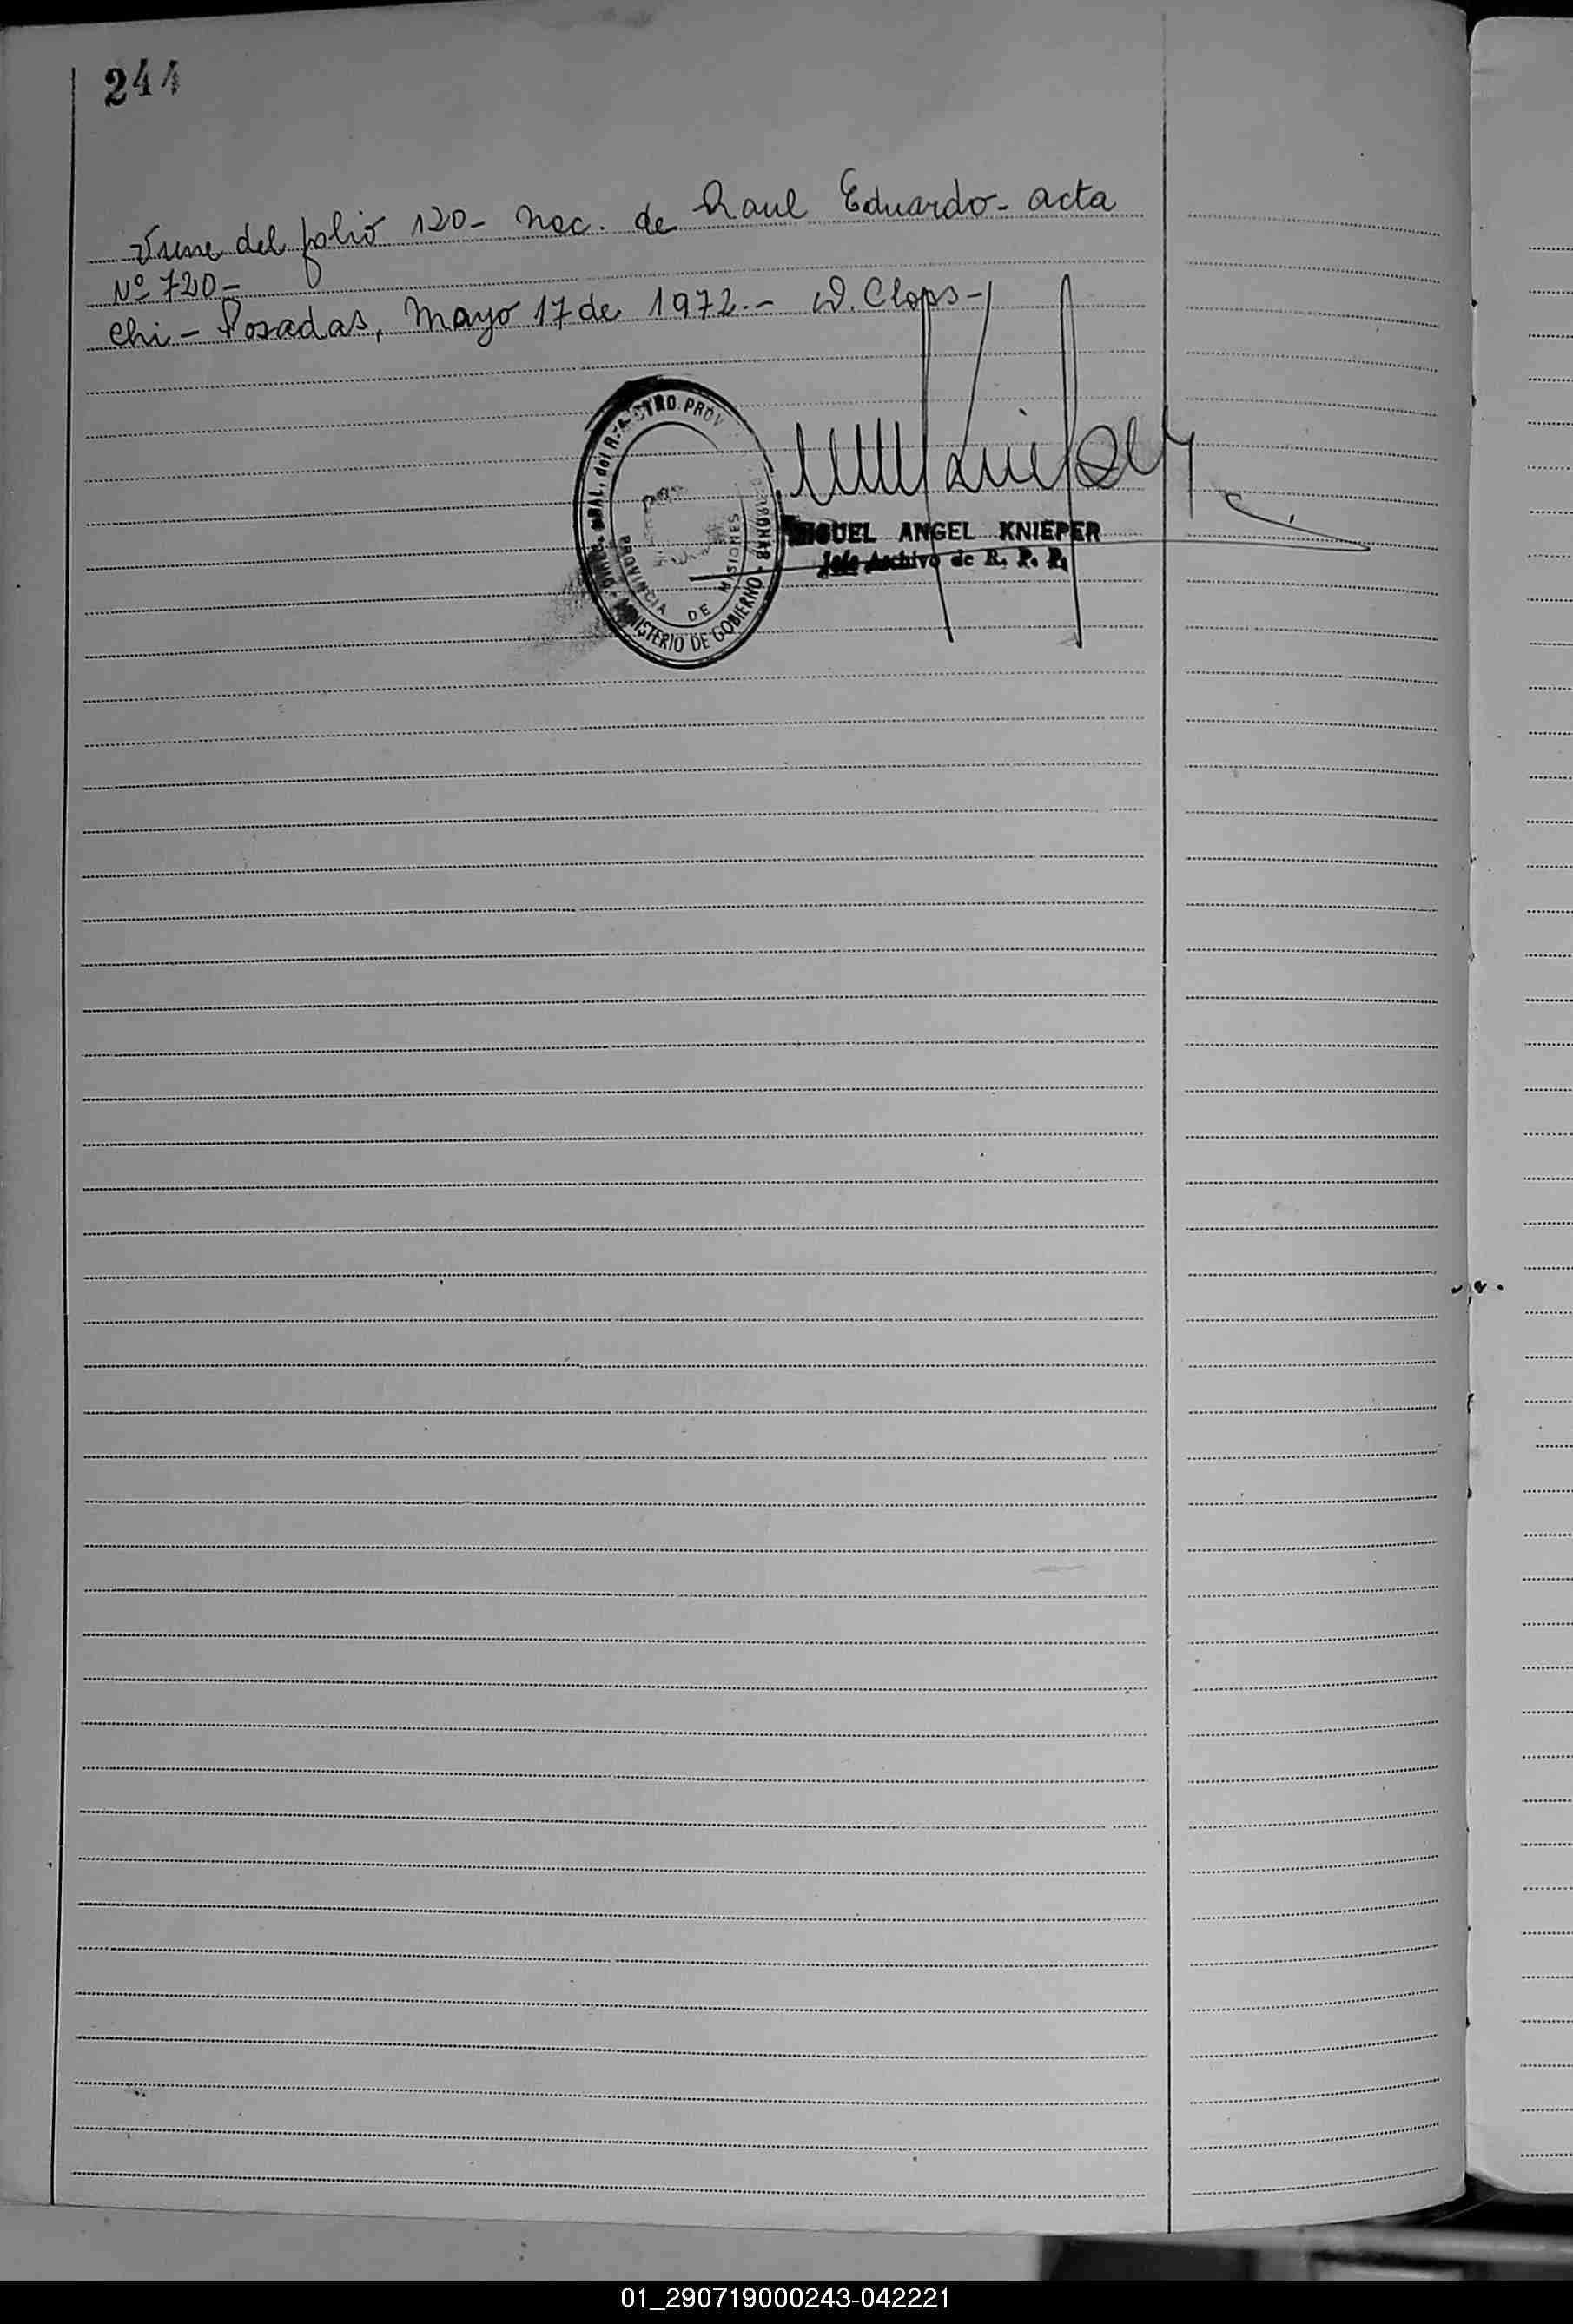 244
Viene del folio 120- Nac. de Raul Eduardo- acta
Nº 720-
Chi- Posadas, Mayo 17 de 1972.- W. Clops-
REGISTRO PROV
MINISTERIO DE GOBIERNO
PROVINCIA DE MISIONES
MIGUEL ANGEL KNIEPER
Jefe Archivo de R. P. P.
01_290719000243-042221